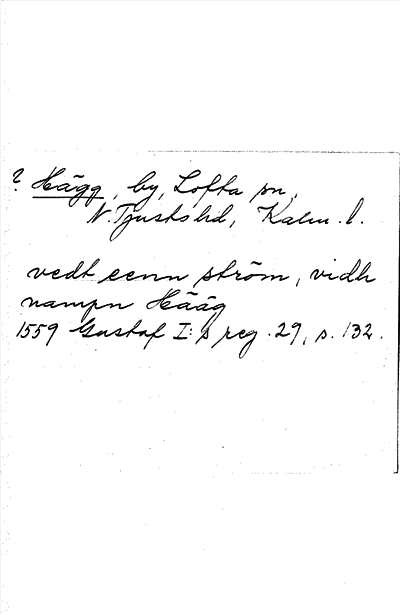 ? Hägg, by, Lofta sn,
N. Tjusts hd, Kalm. l.
vedt eenn ström, vidh
nampn Hääg
1559 Gustaf I:s reg. 29, s. 132.